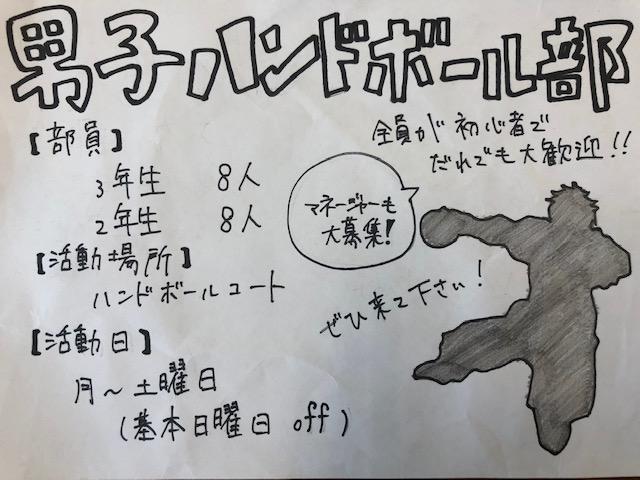 男子ハンドボール部
【部員】
3年生 8人
2年生 8人
【活動場所】
ハンドボールコート
【活動日】
月～土曜日
(基本日曜日 off)
全員が初心者で
だれでも大歓迎!!
マネージャーも
大募集!
ぜひ来て下さい!